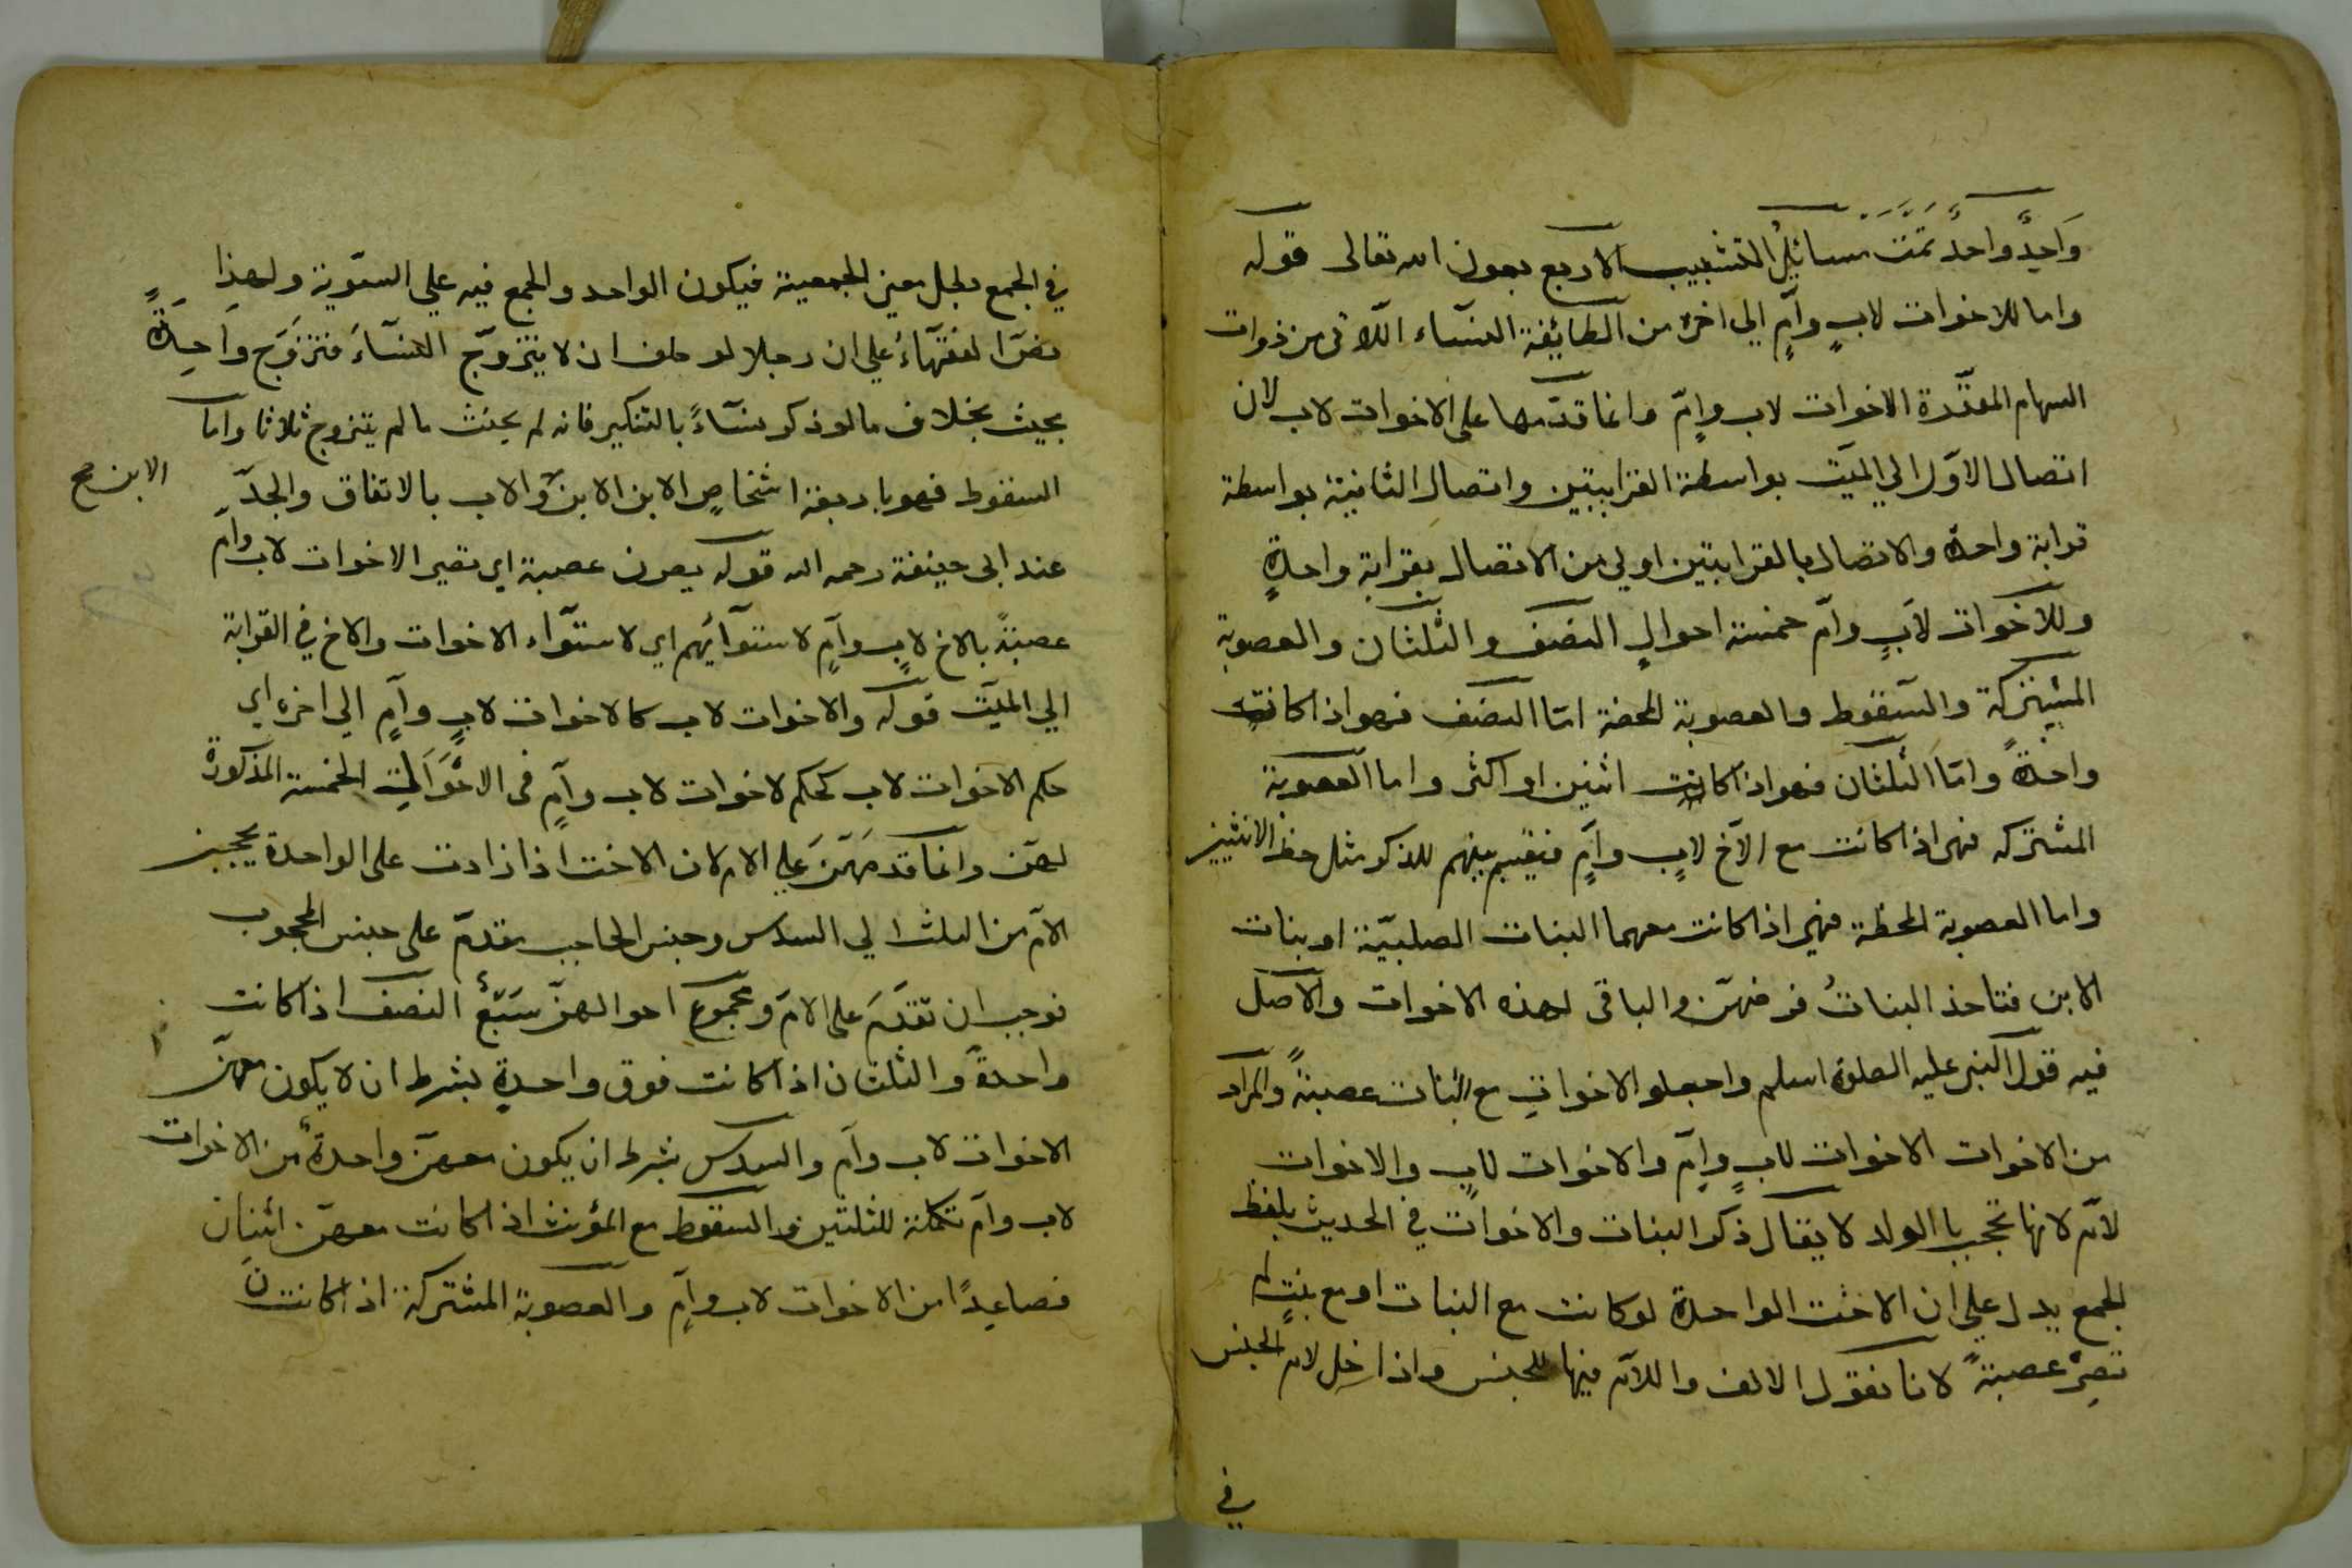 وَاحِدٍ وَاحدٌ تمّت مسائل التشبيب الاربع بعون الله تعالى قوله
واما للاخوات لابٍ وامٍّ الي اخره من الطائفة النسآء اللاتى من ذوات
السهام المقدّرة الاخوات لاب وامٍّ وانما قدّمها على الاخوات لاب لان
اتصال الاوّل الي الميّت بواسطة القرابتين واتصال الثانية بواسطة
قرابة واحدة والاتصال بالقرابتين اولي من الاتصال بقرابةٍ واحدةٍ
وللاخوات لابٍ وامّ خمسة احوالٍ النصف والثلثان والعصوبة
المشتركة والسّقوط والعصوبة المحضة امّا النصف فهو اذا كانت
واحدةً وامّا الثلثان فهو اذا كانت اثنين او اكثر واما العصوبة
المشتركه فهى اذا كانت مع الاخ لابٍ وامٍّ فيقسم بينهم للذكر مثل حظ الانثيين
واما العصوبة المحظة فهي اذا كانت معهما البنات الصلبيّة او بنات
الابن فتاخذ البناتُ فرضهنّ والباقى لهذه الاخوات والاصل
فيه قول النبى عليه الصلوة اسلم واجعلو الاخواتِ مع البنات عصبةً والمراد
من الاخوات الاخوات لابٍ وامٍّ والاخوات لابٍ والاخوات
لامّ لانها تحجب باالولد لا يقال ذكر البنات والاخوات في الحديث بلفظ
الجمع يدل علي ان الاخت الواحدة لو كانت مع البنات او مع بنتٍ لم
تصِرْ عصبةً لانا نقول الالف واللام فيها للجنس واذا خل لام الجنس
في
في الجمع بطل معنى الجمعية فيكون الواحد والجمع فيه علي السّوية ولهذا
نصّ الفقهآءُ علي ان رجلا لو حلف ان لا يتزوّج النسآءَ فتزوَّج واحِدَةً
يحنث بخلاف ما لو ذكر نسآءً بالتنكير فانه لم يحنث ما لم يتزوج ثلاثا واما
السقوط فهو باربعة اشخاصٍ الابن الابن والاب بالاتفاق والجدّ
الابن صح
عند ابى حنيفة رحمه الله قوله يصرن عصبة اي تصير الاخوات لاب وامّ
عصبةً بالاخ لابٍ وامٍّ لاستوآئهم اي لاستوآء الاخوات والاخ في القرابة
الي الميّت قوله والاخوات لاب كالاخوات لابٍ وامٍّ الي اخره اي
حكم الاخوات لاب كحكم لاخوات لاب وامٍّ فى الاحوالت الخمسة المذكورة
لهنّ وانما قدمهنّ علي الام لان الاخت اذا زادت على الواحدة يحجبن
الامّ من الثلث الي السدس وجنس الحاجب مقدمّ على جنس المحجوب
فوجب ان تقدّم على الامّ ومجموع احوالهنّ سَبْعٌ النصف اذا كانت
واحدةً والثلثان اذا كانت فوق واحدةٍ بشرط ان لا يكون معهنّ
الاخوات لاب وامّ والسدس بشرط ان يكون معهنّ واحدةٌ من الاخوات
لاب وامّ تكملة للثلثين والسقوط مع المؤنث اذا كانت معهنّ اثنتان
فصاعِدًا من الاخوات لاب وامٍّ والعصوبة المشتركة اذا كانت